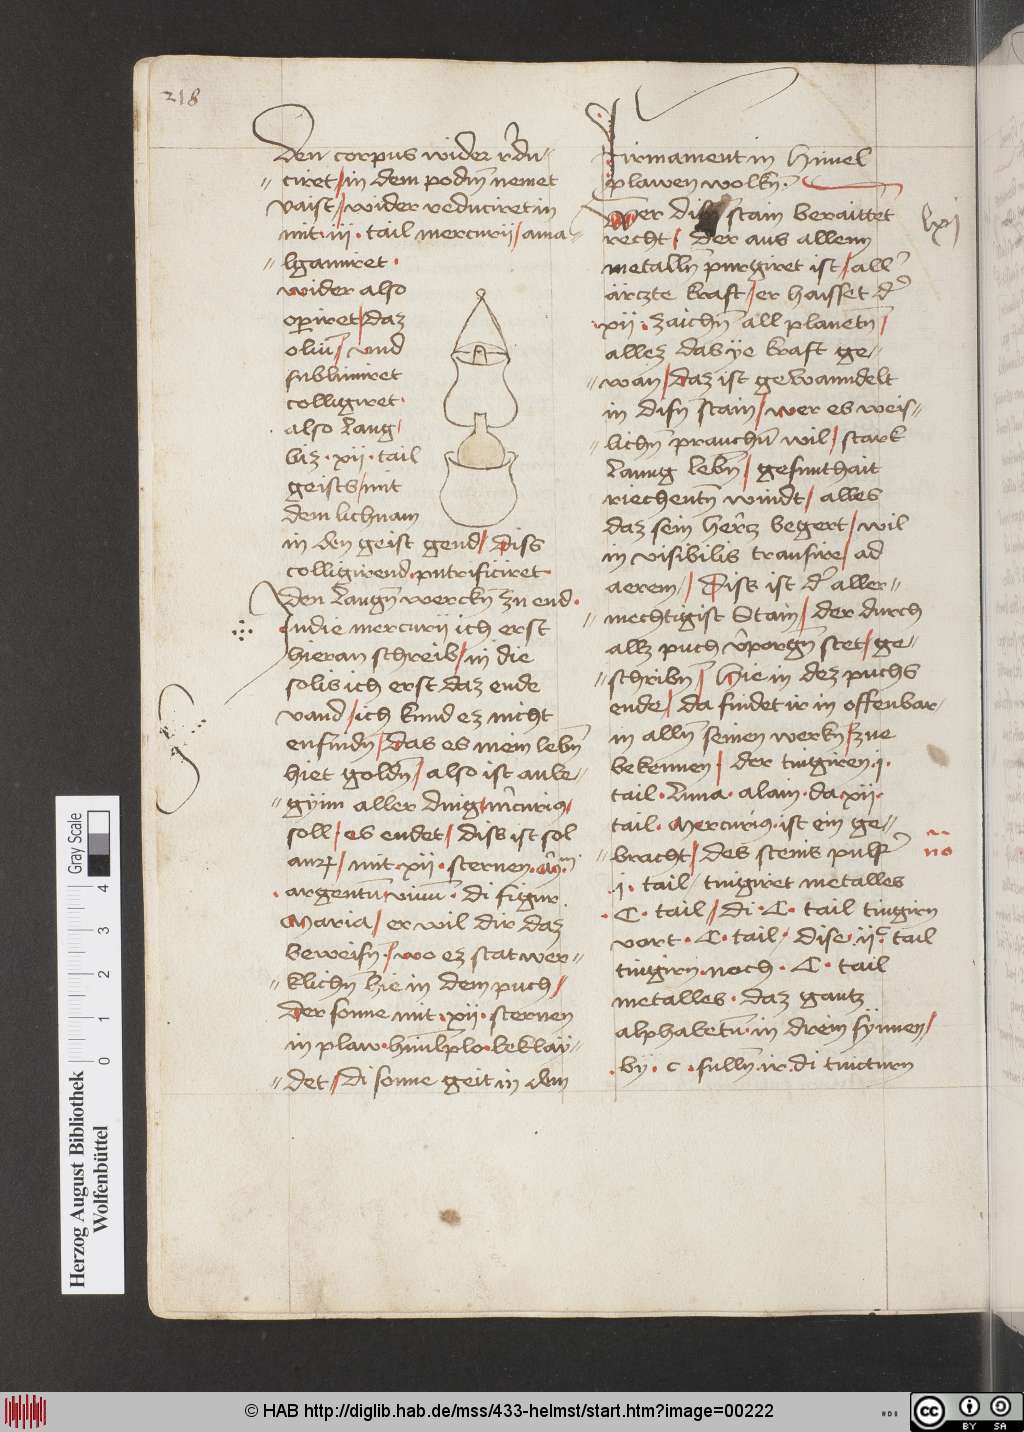 218
den corpus wider r̄du-
ciret / in dem podm̄ nemet
vaist / wider reduciret in
mit · iii · tail mercurii / ama-
lgamiret ·
wider also
operiret / daz
oliū / vnd
sublimiret
colligiret ·
also lang /
biz · xii · tail
geists / mit
dem lichnam
in den geist gend / Diss
colligirend · putrificiret
den langn̄ werckn̄ zu end ·
Indie mercurii ich erst
hieran schreib / in die
solis ich erst daz ende
vand / ich kund ez nicht
enfindn̄ / das es mein lebn̄
hiet goldn̄ / also ist anbe-
gȳnn aller ding / m̄curius /
soll / es endet / diss ist sol
mit · xii · sternen ·
argentum viuū · di figur
Maria / er wil dir daz
beweisn̄ / wo ez stat wer-
klichn̄ hie in dem puch /
der sonne mit · xii · sternen
in plaw · beklaÿ-
det / di sonne geit in dem
Firmament in himel
plawen wolkn̄ ·
Wer disn̄ stain beraittet
recht / der aus allenn
metalln̄ purgiret ist / all̄
ärczte kraft / er haisset d̄
· xii · zaichn̄ all planetn̄ /
allez das ÿe kraft ge-
wan / daz ist gewanndelt
in disn̄ stain / wer es weis-
lichn̄ prauchn̄ wil / stark
lanng lebn̄ / gesunthait
riechentn̄ windt / alles
daz sein hercz begert / wil
in visibilis transire / ad
aerem / Diss ist d̄ aller-
mechtigist Stain / der durch
allz puch v̄porgn̄ stet / ge-
schribn̄ / hie in dez puchs
ende / da findet ir in offenbar
in alln̄ seinen werkn̄ / zue
bekennen / der tingiren · i ·
tail · luna · alain · da · xii ·
tail · Mercurius · ist ein ge-
bracht / des stenis pulf̄
· i · tail / tingiret metalles
· C · tail / di · C · tail tingirn
vort · C · tail / dise · ii c · tail
tingirn · noch · C · tail
metalles · daz gantz
alphabetū · in drein sÿnnen /
· bÿ · c · fulln̄ ir · di tincturn
lxi
no
Herzog August Bibliothek
Wolfenbüttel
Gray Scale
0 1 2 3 4
© HAB http://diglib.hab.de/mss/433-helmst/start.htm?image=00222
cc BY SA